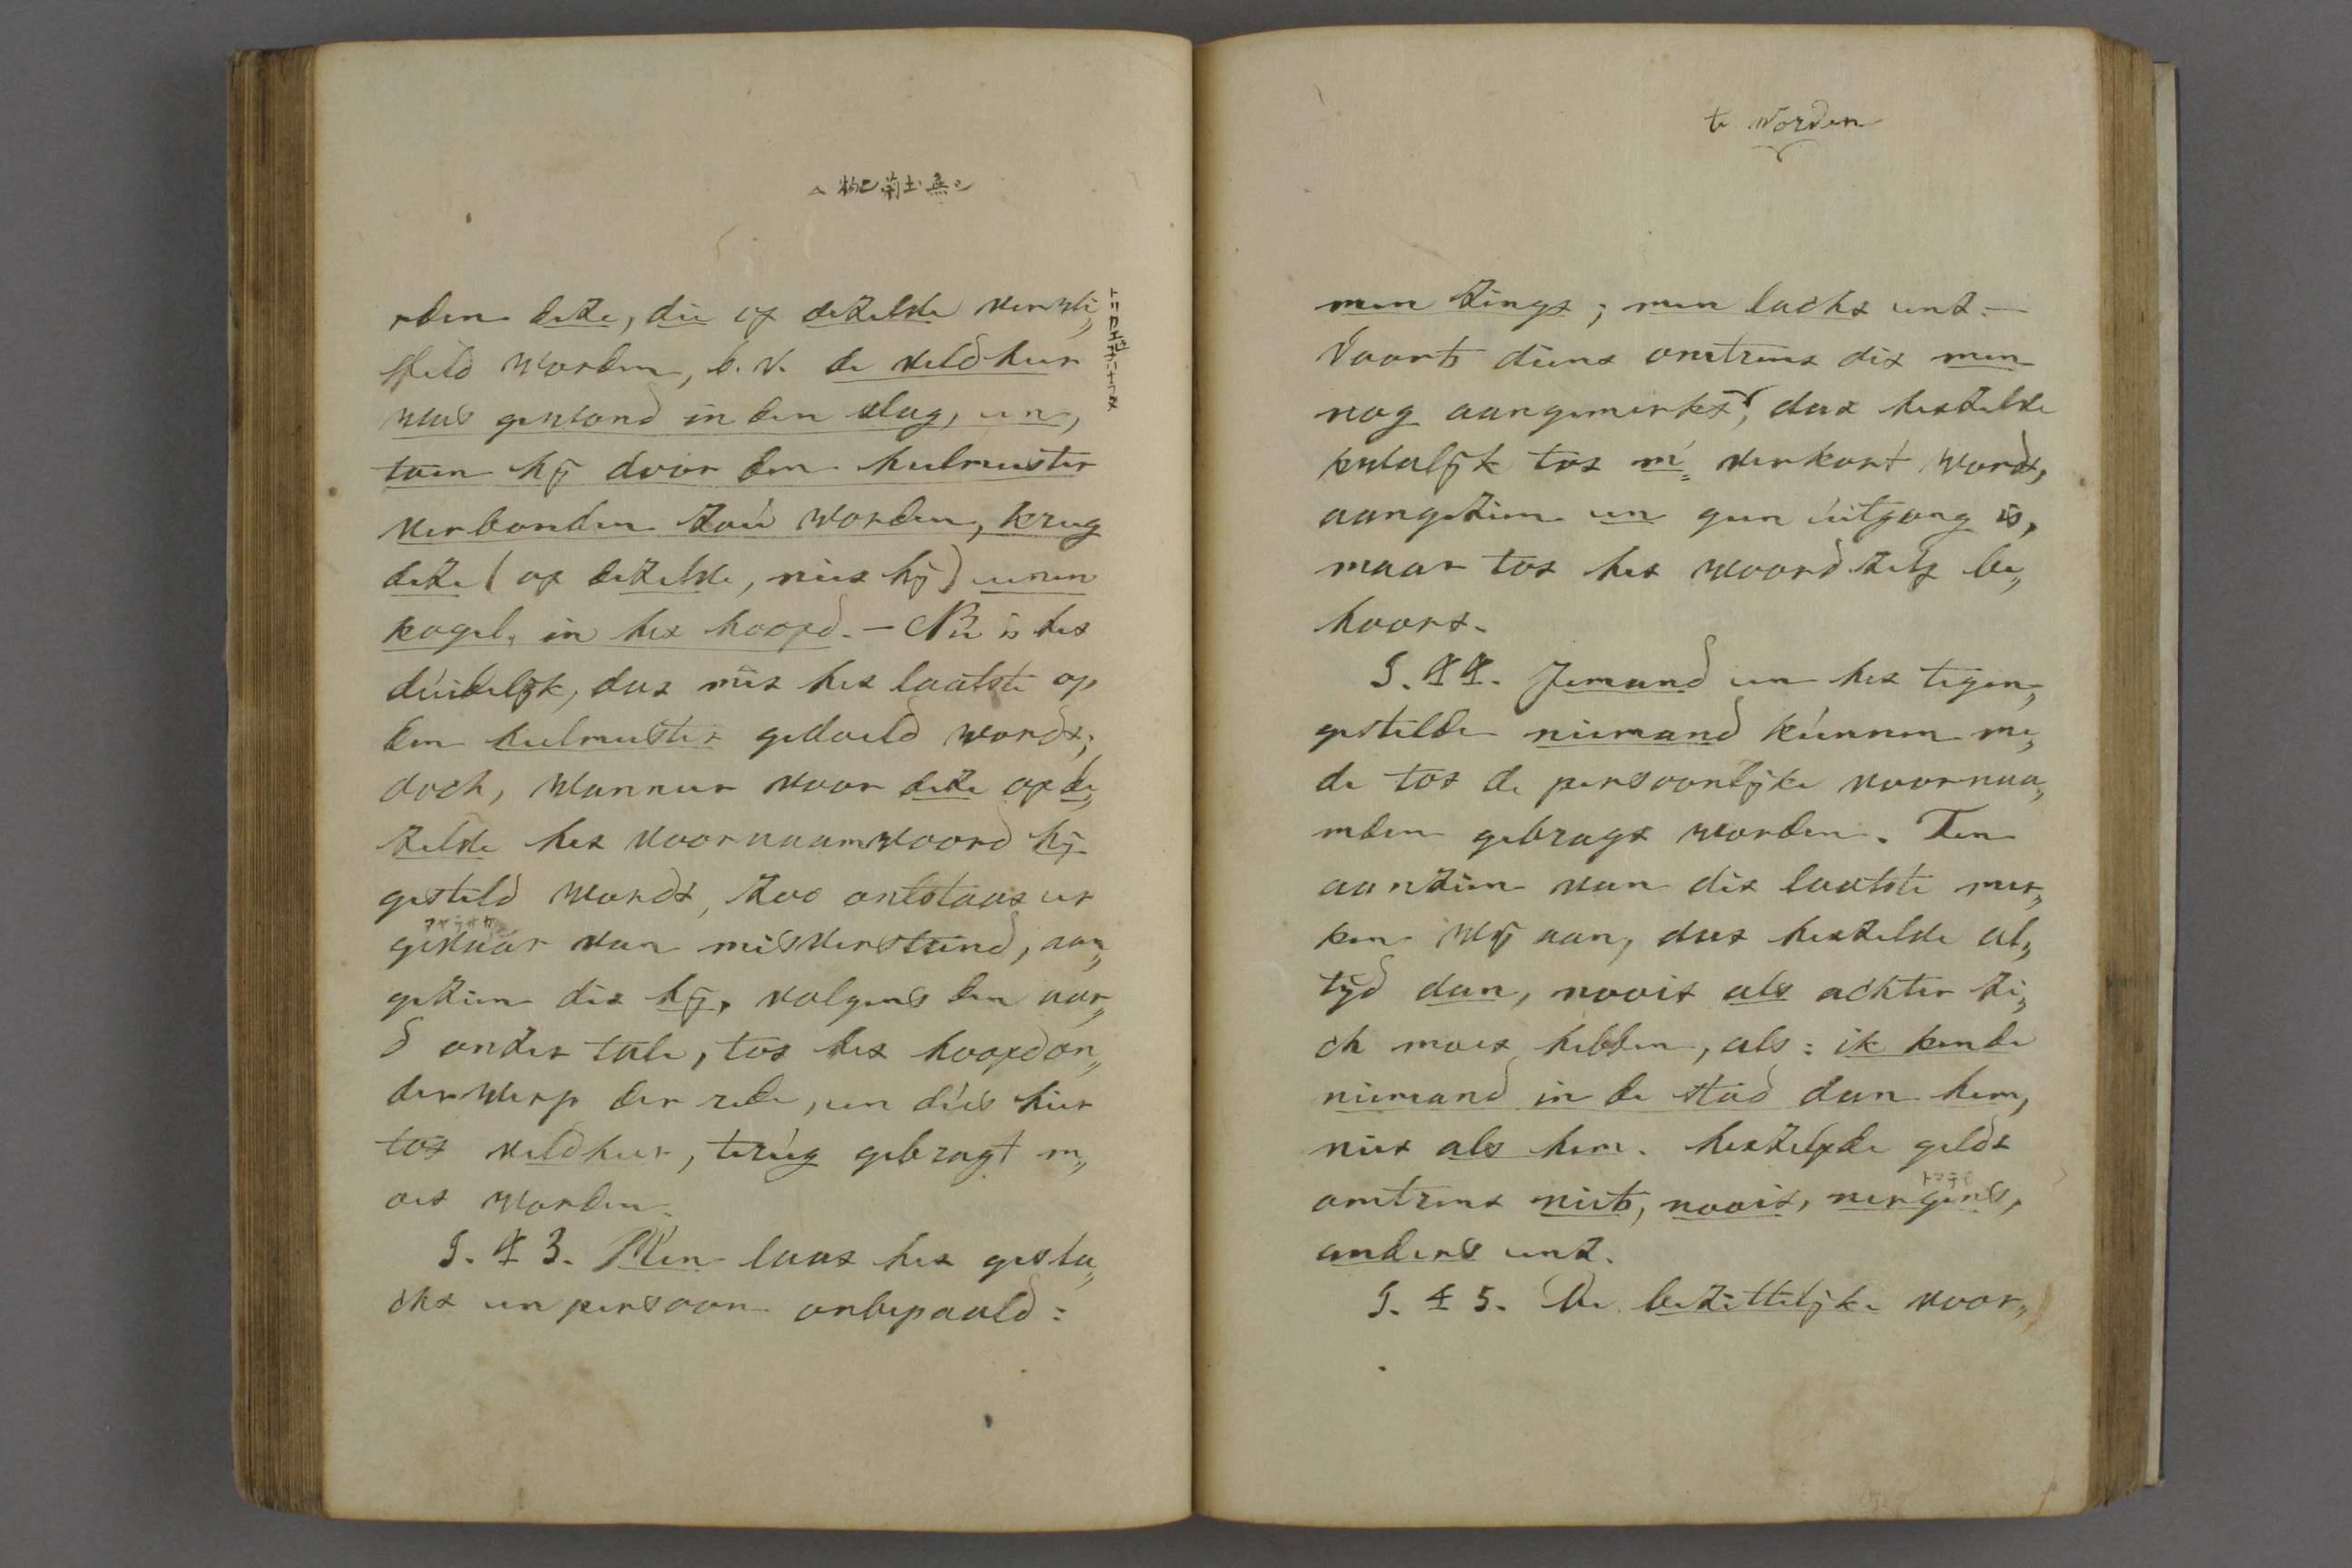 rden deze, die of dezelve verwis„
seld worden, b.v. de veldheer
was gewond in den slag, en,
toen hij door den heelmeester
verbonden zoú worden, kreeg
deze (of dezelve, niet hij) eenen
kogel, in het hoofd. — Nú is het
dúidelijk, dat met het laatste op
den heelmeester gedoeld wordt;
doch, wanneer voor deze of de„
zelve het voornaamwoord hij
gesteld wordt, zoo ontstaat er
gevaar van misverstand, aan„
gezien dit hij, volgens den aar„
d onzer tale, tot het hoofdon„
derwerp der rede, en dús hier
tot veldheer, terúg gebragt m„
oet worden.
§. 43. Men laat het gesla„
cht en persoon onbepaald:
te worden
men zingt; men lacht enz. —
Voorts dient omtrent dit men
nog aangemerkt, dat hetzelve
kwalijk tot m' verkort wordt,
aangezien en geen úitgang is,
maar tot het woord zelf be„
hoort.
§. 44. Jemand en het tegen„
gestelde niemand kúnnen me„
de tot de persoonlijke voornaa„
mden gebragt worden. Ten
aanzien van dit laatste mer„
ken wij aan, dat hetzelve al„
tijd dan, nooit als achter zi„
ch moet hebben, als: ik kende
niemand in de stad dan hem,
niet als hem. hetzelfde geldt
omtrent niets, nooit, nergens,
anders enz.
§. 45. De bezittelijke voor„